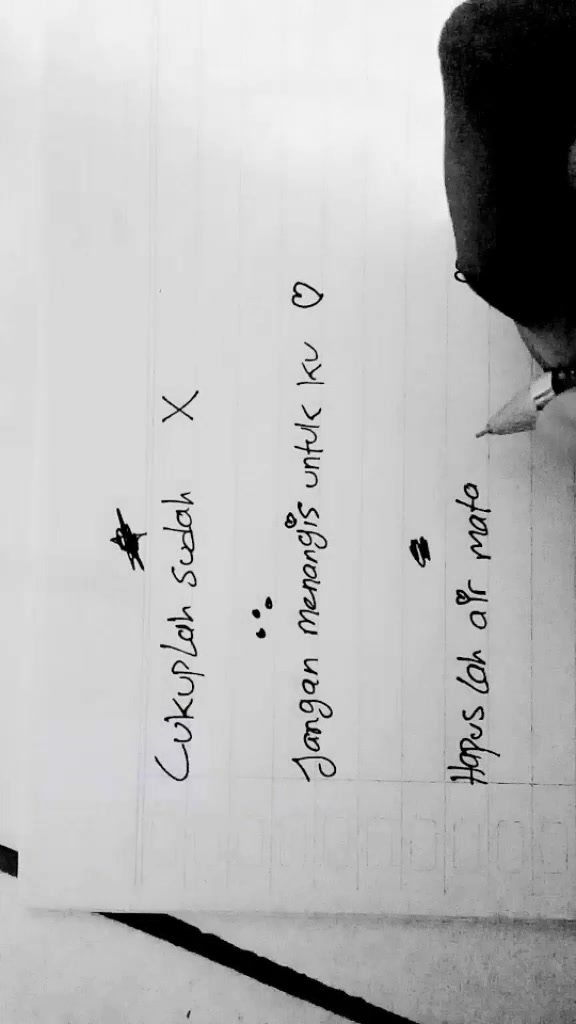 Cukuplah sudah X
Jangan menangis untuk ku ♡
Hapus lah air mata